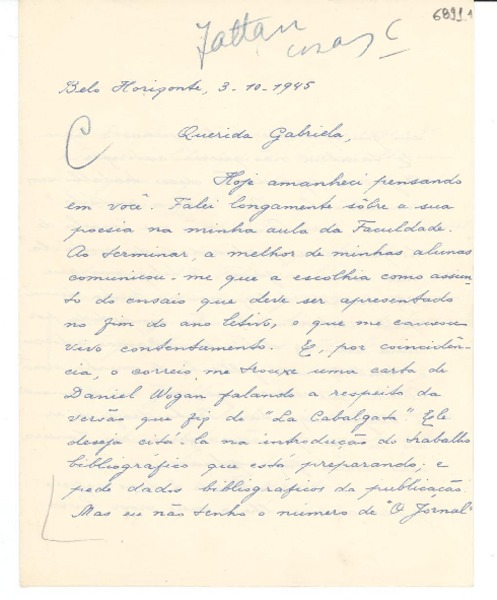 6891
Faltan
cosas
Belo Horizonte, 3-10-1945
Querida Gabriela,
Hoje amanheci pensando
em você. Falei longamente sôbre a sua
poesia na minha aula da Faculdade.
Ao terminar, a melhor de minhas alunas
comunicou-me que a escolhia como assun-
to do ensaio que deve ser apresentado
no fim do ano letivo, o que me causou
vivo contentamento. E, por coincidên-
cia, o correio me trouxe uma carta de
Daniel Wogan falando a respeito da
versão que fiz de "La Cabalgata". Ele
deseja citá-la na introdução do trabalho
bibliográfico que está preparando; e
pede dados bibliográficos da publicação.
Mas eu não tenho o número de "O Jornal"